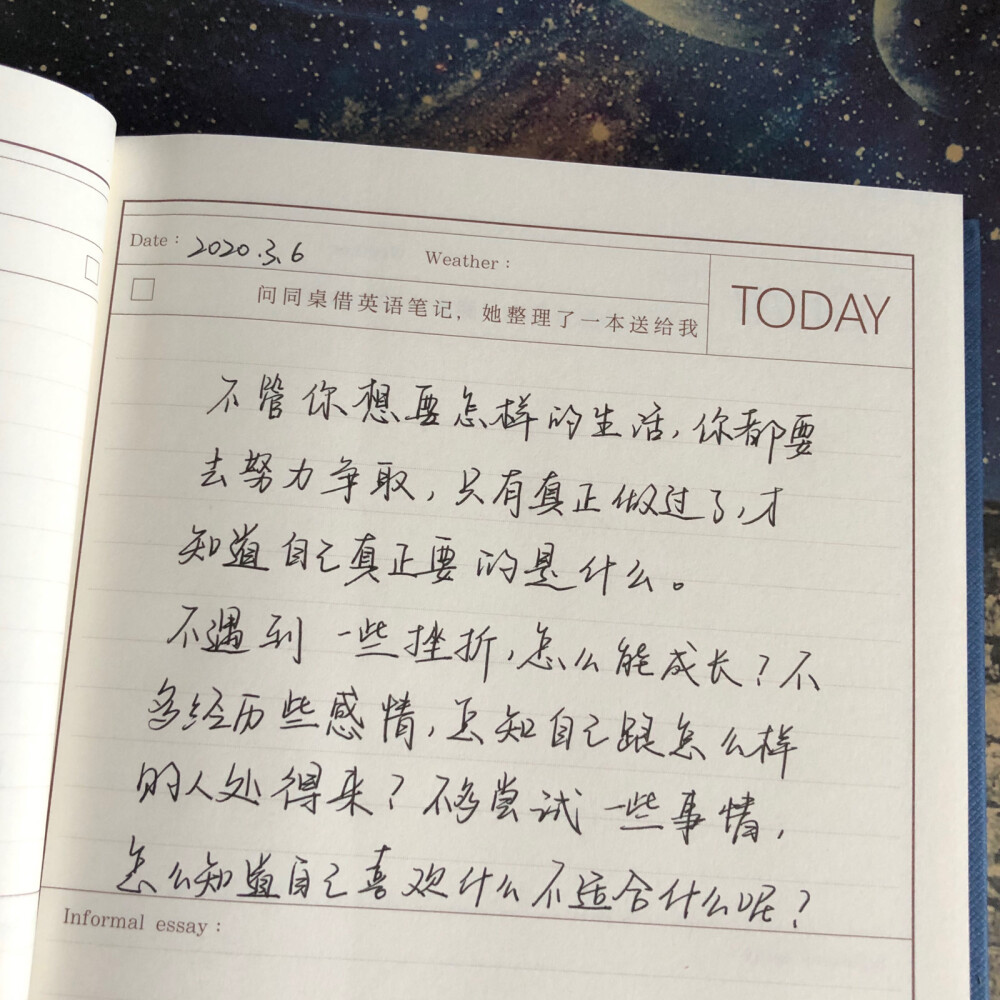 Date： 2020.3.6
Weather：
TODAY
问同桌借英语笔记，她整理了一本送给我
不管你想要怎样的生活，你都要
去努力争取，只有真正做过了，才
知道自己真正要的是什么。
不遇到一些挫折，怎么能成长？不
多经历些感情，怎知自己跟怎么样
的人处得来？不多尝试一些事情，
怎么知道自己喜欢什么不适合什么呢？
Informal essay：